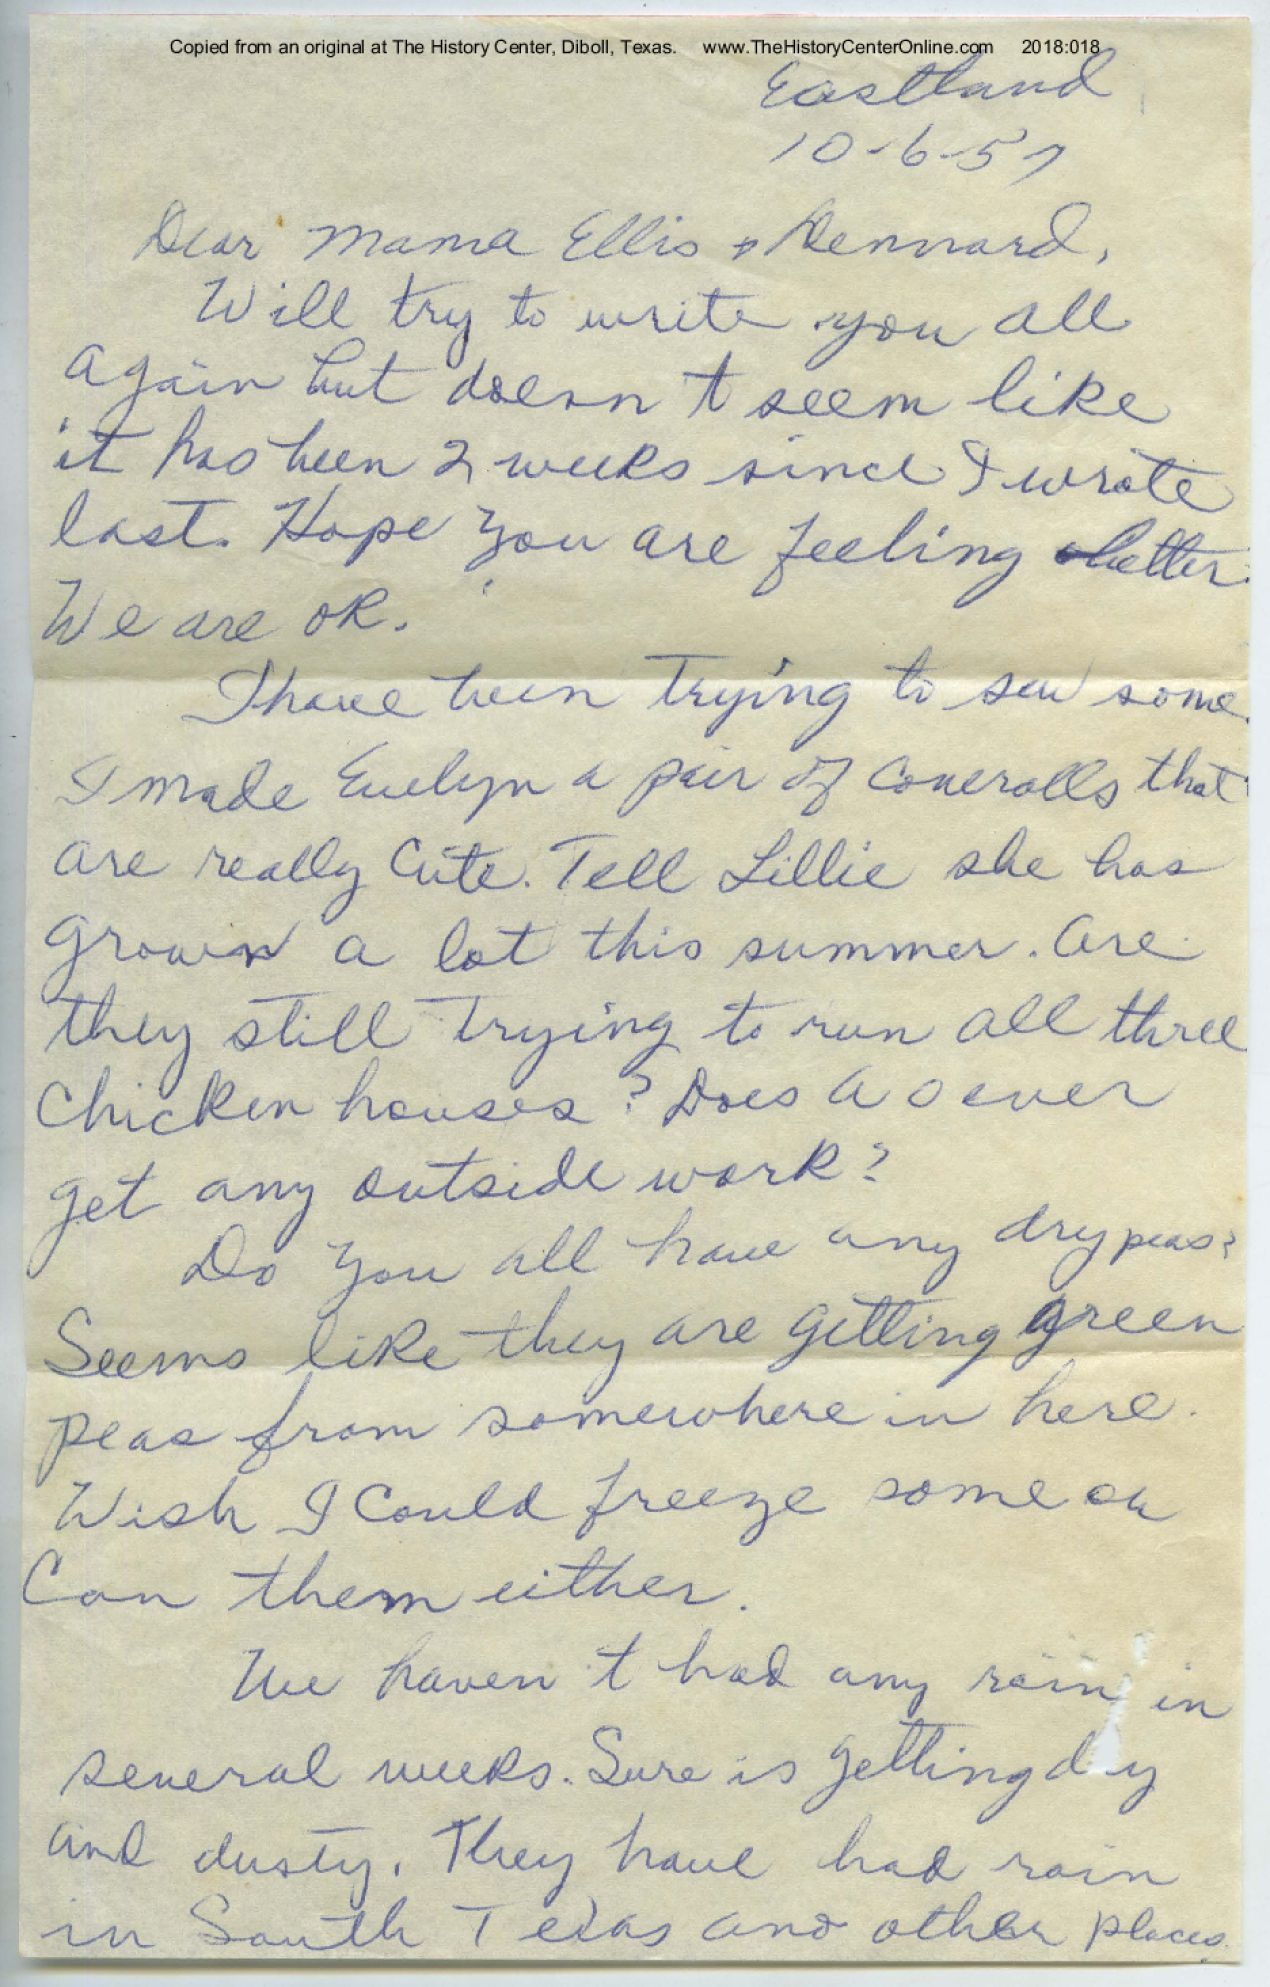 Copied from an original at The History Center, Diboll, Texas. www.TheHistoryCenterOnline.com 2018:018
Eastland
10-6-57
Dear Mama Ellis + Kennard,
Will try to write you all
again but doesn't seem like
it has been 2 weeks since I wrote
last. Hope you are feeling better.
We are OK.
I have been trying to sew some.
I made Evelyn a pair of coveralls that
are really cute. Tell Lillie she has
grown a lot this summer. Are
they still trying to run all three
chicken houses? Does A O ever
get any outside work?
Do you all have any dry peas?
Seems like they are getting green
peas from somewhere in here.
Wish I could freeze some or
can them either.
We haven't had any rain in
several weeks. Sure is getting d y
and dusty. They have had rain
in South Texas and other places.